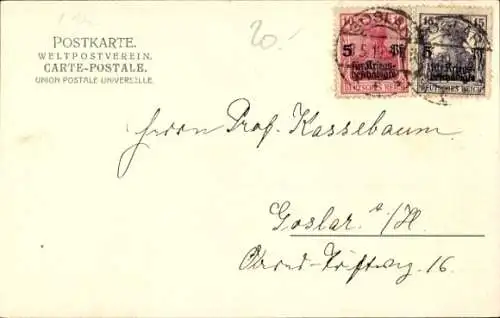 POSTKARTE.
WELTPOSTVEREIN.
CARTE-POSTALE.
UNION POSTALE UNIVERSELLE.
20.-
GOSLAR
10 5 Pf
für Kriegs-
beschädigte
DEUTSCHES REICH
15 15 5 Pf
für Kriegs-
beschädigte
DEUTSCHES REICH
Herrn Prof. Kassebaum
Goslar a/H.
16.